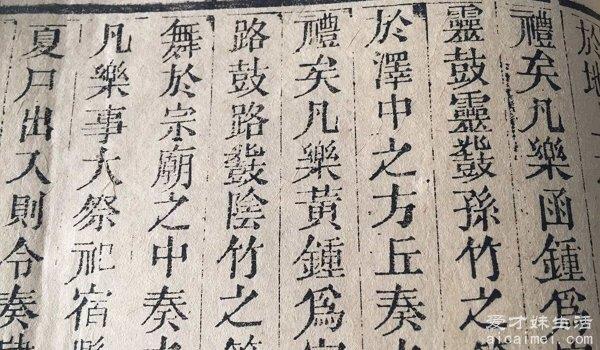 於地
禮矣凡樂函鍾爲
靈鼓靈鼗孫竹之
於澤中之方丘奏
禮矣凡樂黃鍾爲
路鼓路鼗陰竹之
舞於宗廟之中奏
凡樂事大祭祀宿縣
夏尸出入則令奏肆
爱才妹生活
aicaimei.com